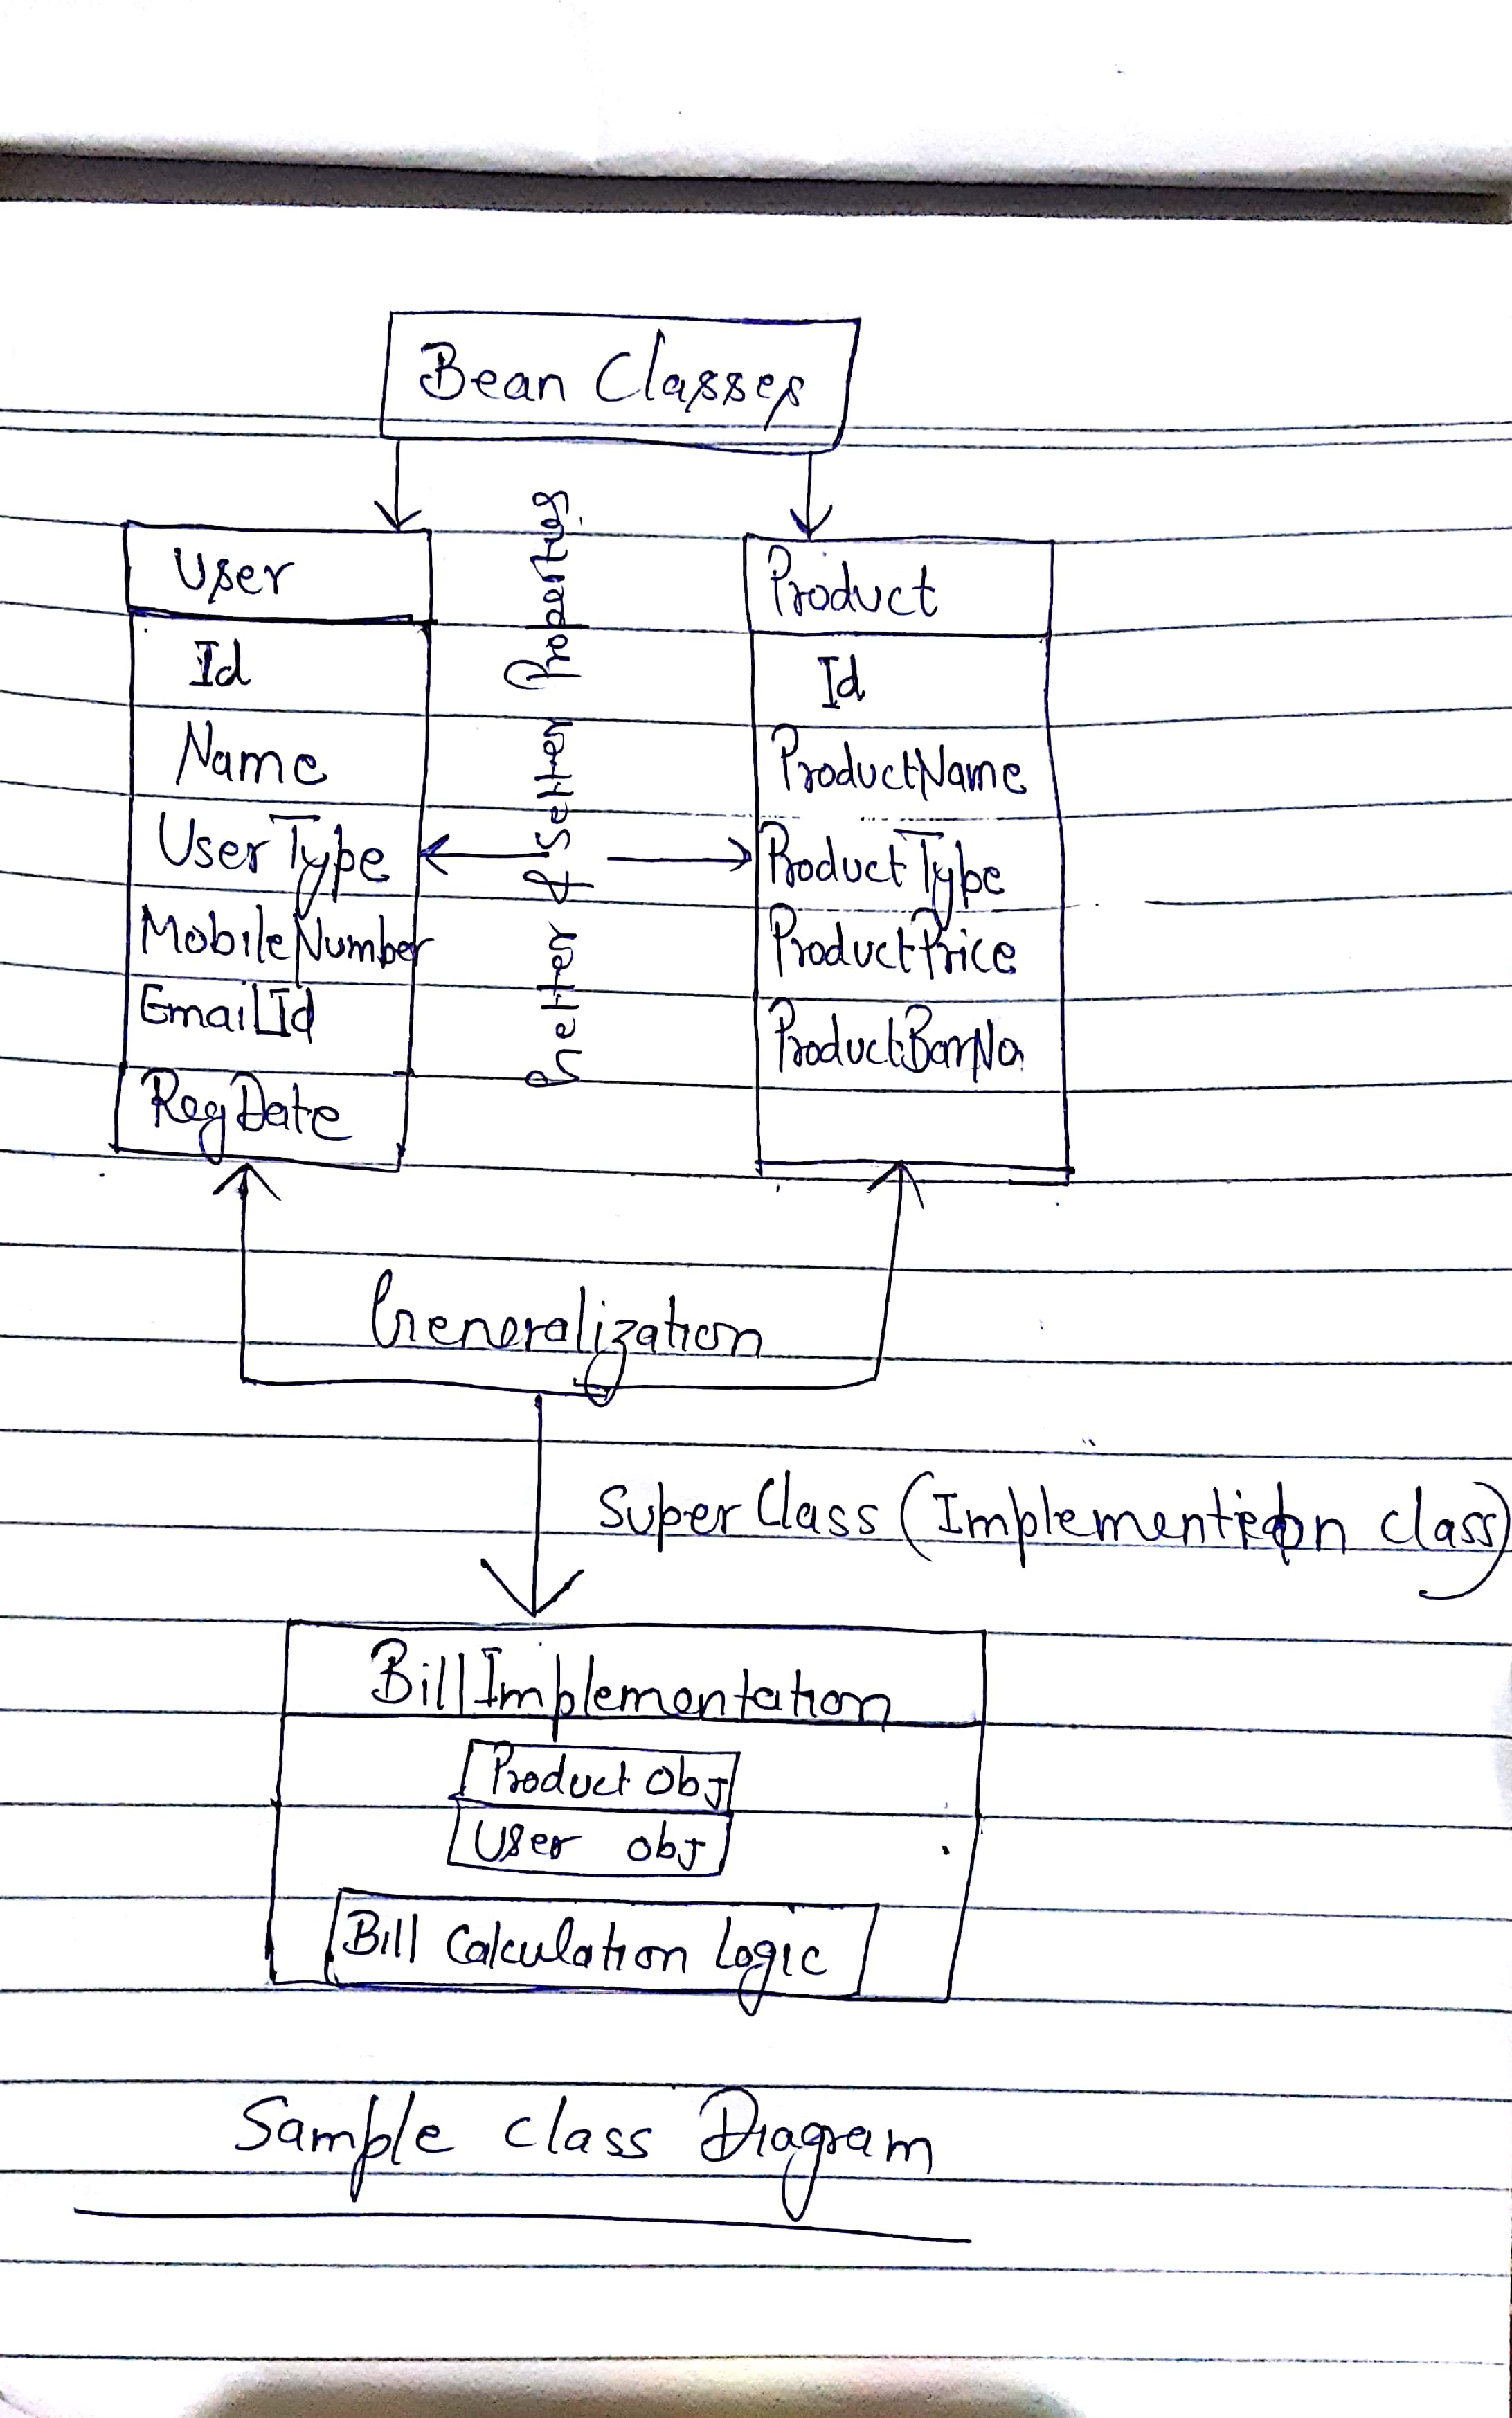 Bean Classes
User
Id
Name
UserType
MobileNumber
EmailId
RegDate
Getter & Setter Properties
Product
Id
ProductName
ProductType
ProductPrice
ProductBarNo.
Generalization
Super Class (Implementation class)
BillImplementation
Product Obj
User obj
Bill Calculation Logic
Sample class Diagram